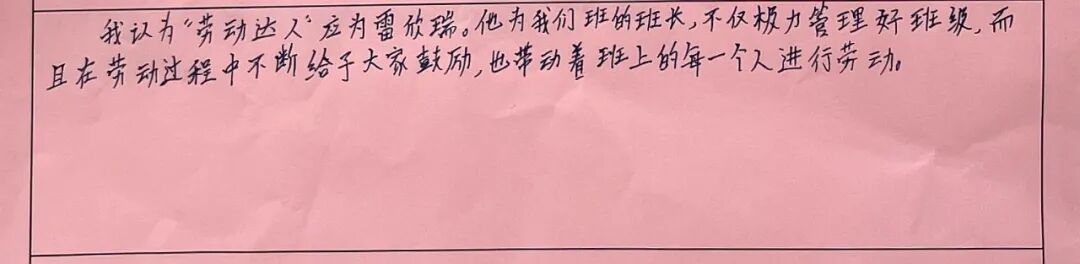 我认为“劳动达人”应为雷欣瑞。他为我们班的班长，不仅极力管理好班级，而
且在劳动过程中不断给予大家鼓励，也带动着班上的每一个人进行劳动。